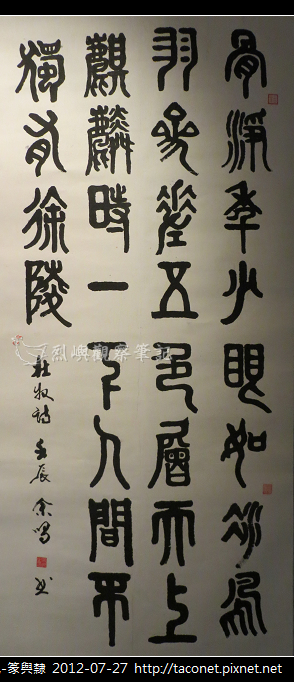 骨清年少眼如冰鳳
羽參差五色層天上
麒麟時一下人間不
獨有徐陵
杜牧詩 壬辰 余鳴 書
烈嶼觀察筆記
-篆與隸 2012-07-27 http://taconet.pixnet.net